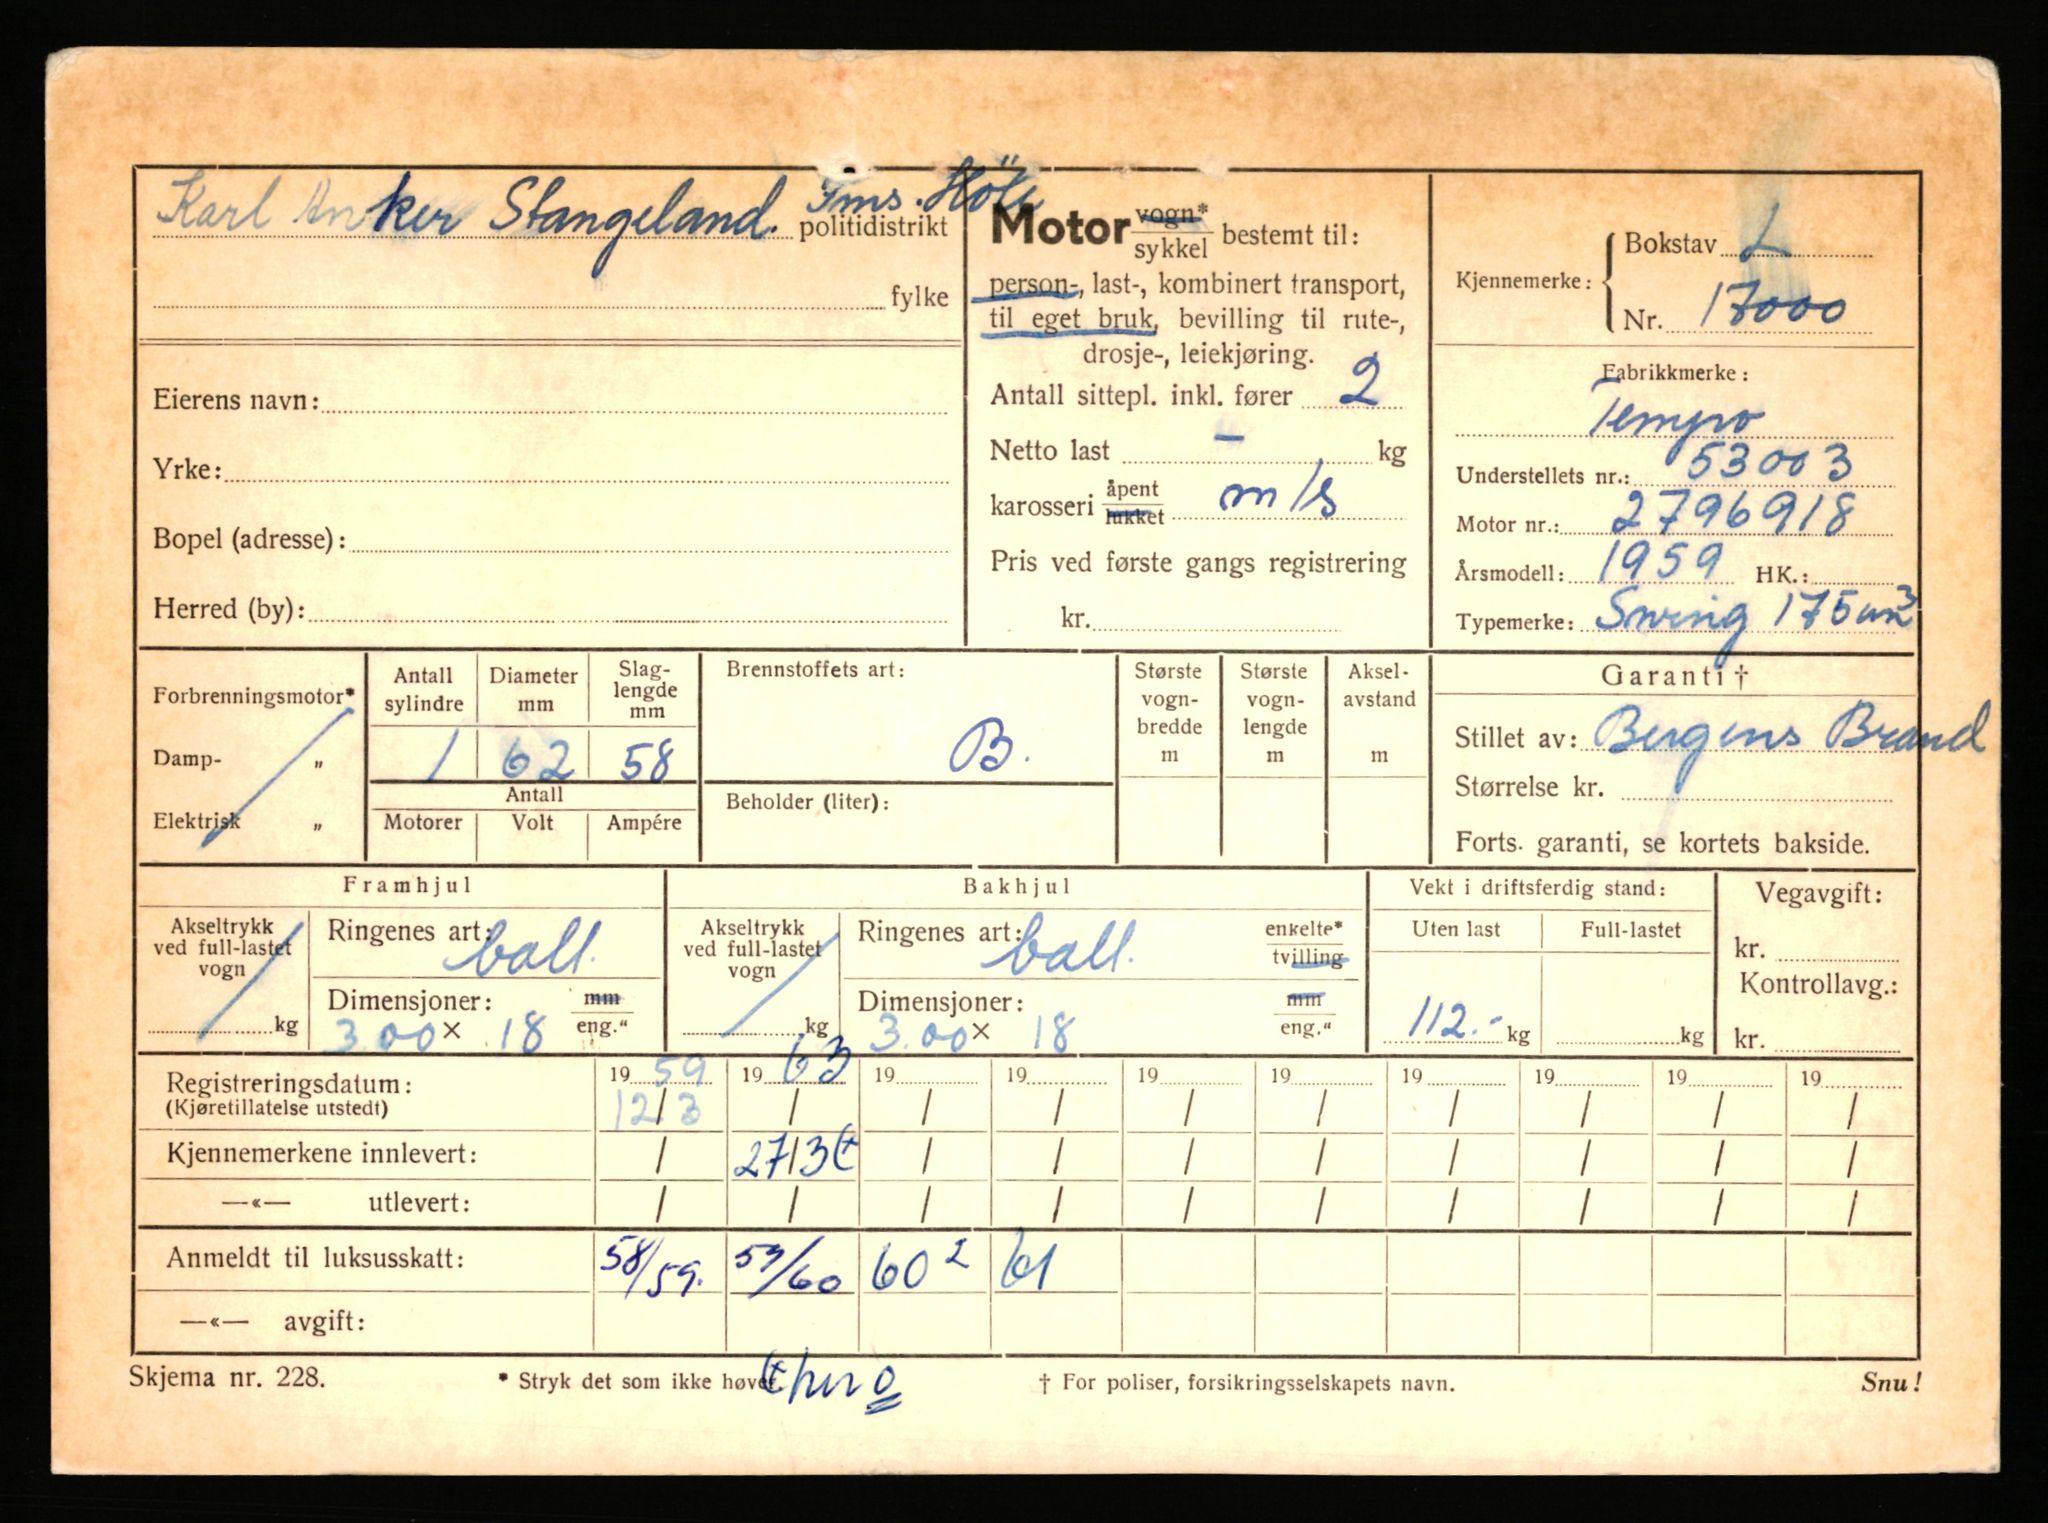 Karl Anker Stangeland. Fms. Höle
politidistrikt
fylke
Eierens navn:
Yrke:
Bopel (adresse):
Herred (by):
Motor vogn* / sykkel bestemt til:
person-, last-, kombinert transport,
til eget bruk, bevilling til rute-,
drosje-, leiekjøring.
Antall sittepl. inkl. fører 2
Netto last - kg
karosseri åpent / lukket m/s
Pris ved første gangs registrering
kr.
Kjennemerke: Bokstav L
Nr. 17000
Fabrikkmerke:
Tempo
Understellets nr.: 53003
Motor nr.: 2796918
Årsmodell: 1959 HK.:
Typemerke: Swing 175 cm3
Forbrenningsmotor*
Damp- „
Elektrisk „
Antall sylindre Diameter mm Slag-lengde mm
1 62 58
Antall
Motorer Volt Ampére
Brennstoffets art:
B.
Beholder (liter):
Største vogn-bredde m
Største vogn-lengde m
Aksel-avstand m
Garanti †
Stillet av: Bergens Brand
Størrelse kr.
Forts. garanti, se kortets bakside.
Framhjul
Akseltrykk ved full-lastet vogn
kg
Ringenes art: ball.
Dimensjoner: mm / eng."
3.00 × 18
Bakhjul
Akseltrykk ved full-lastet vogn
kg
Ringenes art: ball. enkelte* / tvilling
Dimensjoner: mm / eng."
3.00 × 18
Vekt i driftsferdig stand:
Uten last Full-lastet
112.- kg kg
Vegavgift:
kr.
Kontrollavg.:
kr.
Registreringsdatum: 19 59 19 63 19 19 19 19 19 19 19 19
(Kjøretillatelse utstedt) 12/3 / / / / / / / / /
Kjennemerkene innlevert: / 27/3 / / / / / / / /
—«— utlevert: / / / / / / / / / /
Anmeldt til luksusskatt: 58/59. 59/60 60 2 61
—«— avgift:
Skjema nr. 228.
* Stryk det som ikke høver.
† For poliser, forsikringsselskapets navn.
Snu!